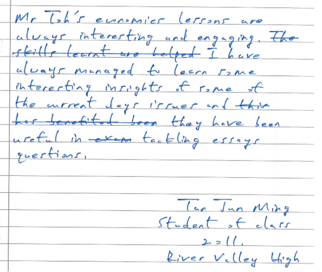 Mr Toh's economics lessons are
always interesting and engaging. The
skills learnt are helped I have
always managed to learn some
interesting insights of some of
the current days issues and this
has benefited been they have been
useful in exam tackling essays
questions.
Tan Jun Ming
Student of class
2011.
River Valley High